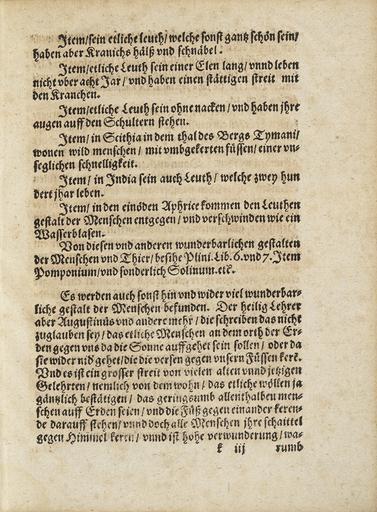 Item/sein etliche leuth/welche sonst gantz schön sein/
haben aber Kranichs hälß vnd schnäbel.
Item/etliche Leuth sein einer Elen lang/vnnd leben
nicht vber acht Jar/vnd haben einen stättigen streit mit
den Kranchen.
Item/etliche Leuth sein ohne nacken/vnd haben jhre
augen auff den Schultern stehen.
Item/in Scithia in dem thal des Bergs Tymani/
wonen wild menschen/mit vmbgekerten füssen/einer vn-
seglichen schnelligkeit.
Item/in India sein auch Leuth/welche zwey hun
dert jhar leben.
Item/in den einöden Aphrice kommen den Leuthen
gestalt der Menschen entgegen/vnd verschwinden wie ein
Wasserblasen.
Von diesen vnd anderen wunderbarlichen gestalten
der Menschen vnd Thier/besihe Plini. Lib. 6. vnd 7. Item
Pomponium/vnd sonderlich Solinum. etc.
Es werden auch sonst hin vnd wider viel wunderbar-
liche gestalt der Menschen befunden. Der heilig Lehrer
aber Augustinus vnd andere mehr/die schreiben das nicht
zuglauben sey/das etliche Menschen an dem orth der Er-
den gegen vns da die Sonne auffgehet sein sollen/oder da
sie wider nidgehet/die die versen gegen vnsern Füssen kerē.
Vnd es ist ein grosser streit von vielen alten vnnd jetzigen
Gelehrten/nemlich von dem wohn/das etliche wöllen ja
gäntzlich bestätigen/das geringsumb allenthalben men-
schen auff Erden seien/vnd die Füß gegen einander keren-
de darauff stehen/vnnd doch alle Menschen jhre schaittel
gegen Himmel keren/vnnd ist hohe verwunderung/wa-
k iij rumb